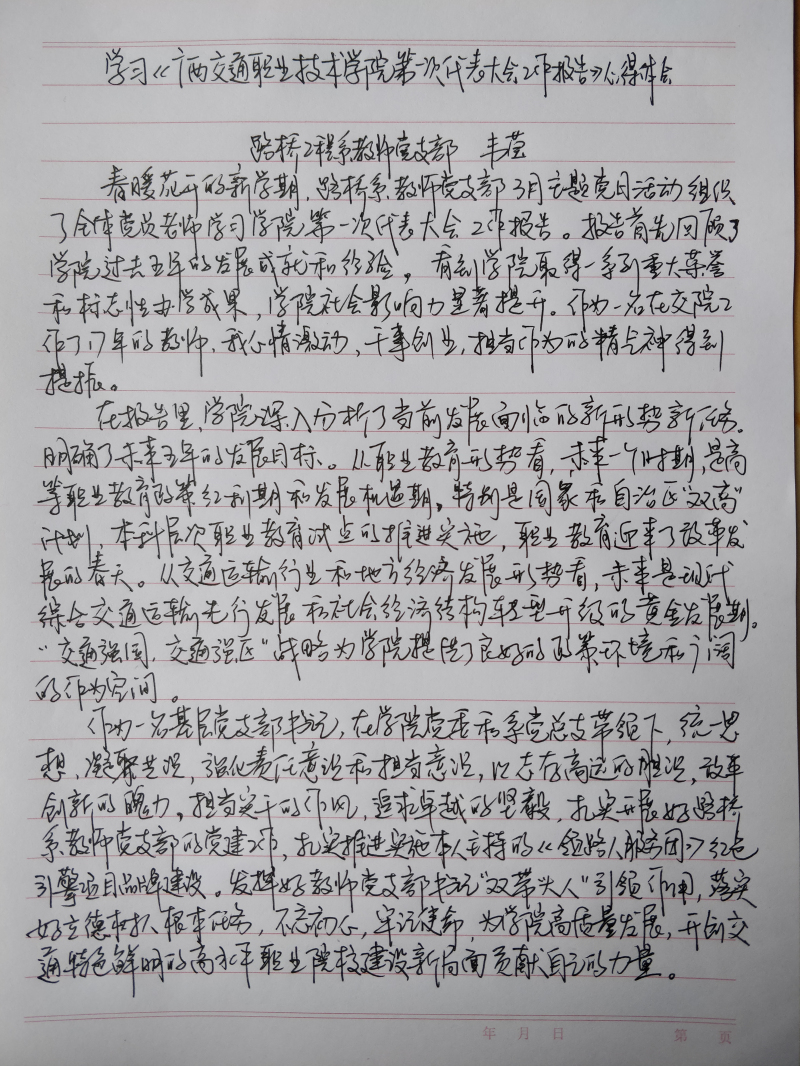 学习《广西交通职业技术学院第一次代表大会工作报告》心得体会
路桥工程系教师党支部 韦莹
春暖花开的新学期，路桥系教师党支部3月主题党日活动组织
了全体党员老师学习学院第一次代表大会工作报告。报告首先回顾了
学院过去五年的发展成就和经验，看到学院取得一系列重大荣誉
和标志性办学成果，学院社会影响力显著提升。作为一名在交院工
作了17年的教师，我心情激动，干事创业，担当作为的精气神得到
提振。
在报告里，学院深入分析了当前发展面临的新形势新任务。
明确了未来五年的发展目标。从职业教育形势看，未来一个时期，是高
等职业教育政策红利期和发展机遇期。特别是国家和自治区“双高”
计划，本科层次职业教育试点的推进实施，职业教育迎来了改革发
展的春天。从交通运输行业和地方经济发展形势看，未来是现代
综合交通运输先行发展和社会经济结构转型升级的黄金发展期。
“交通强国，交通强区”战略为学院提供了良好的政策环境和广阔
的作为空间。
作为一名基层党支部书记，在学院党委和系党总支带领下，统一思
想，凝聚共识，强化责任意识和担当意识，以志存高远的胆识，改革
创新的魄力，担当实干的作风，追求卓越的坚毅，扎实开展好路桥
系教师党支部的党建工作，扎实推进实施本人主持的《领路人服务团》红色
引擎项目品牌建设。发挥好教师党支部书记“双带头人”引领作用，落实
好立德树人根本任务，不忘初心，牢记使命，为学院高质量发展，开创交
通特色鲜明的高水平职业院校建设新局面贡献自己的力量。
年 月 日 第 页